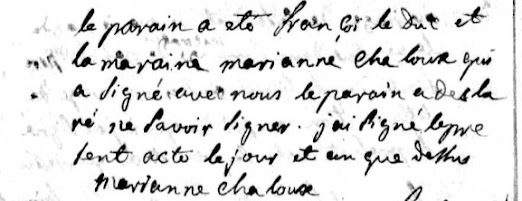 le parain a eté françoi le duc et
la maraine marianne chaloux qui
a signé avec nous le parain a decla
ré ne savoir signer. j'ai signé le pre
sent acte le jour et an que dessus
marianne chaloux